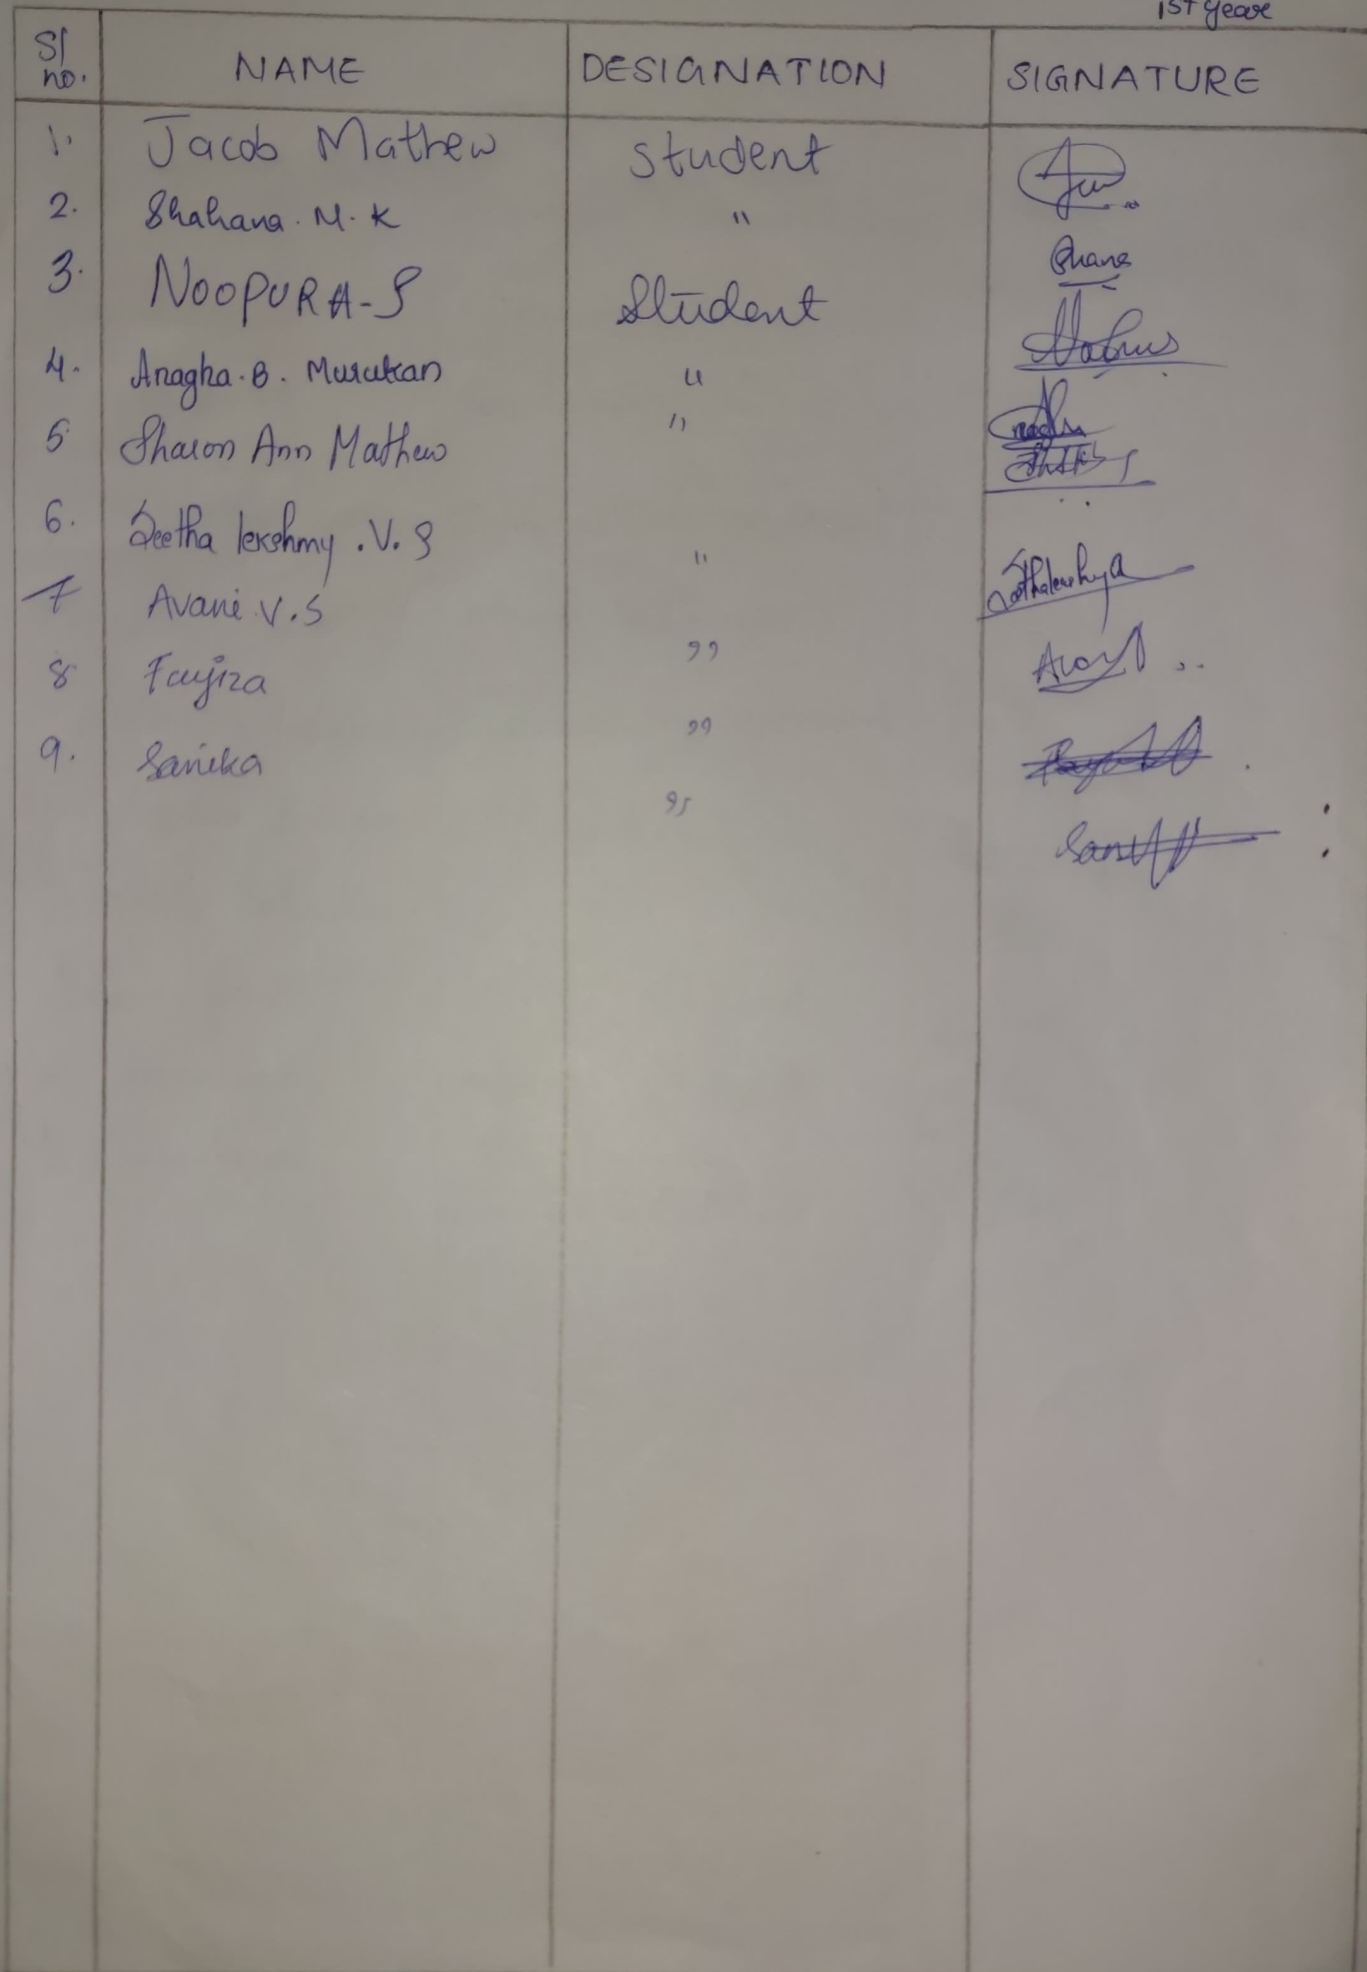 1ST Year
Sl no. NAME DESIGNATION SIGNATURE
1. Jacob Mathew Student
2. Shahana. M. K "
3. NOOPURA-S Student
4. Anagha. B. Murukan "
5 Sharon Ann Mathew "
6. Seetha lekshmy .V. S "
7 Avani V.S "
8 Fayjiza "
9. Sanika "